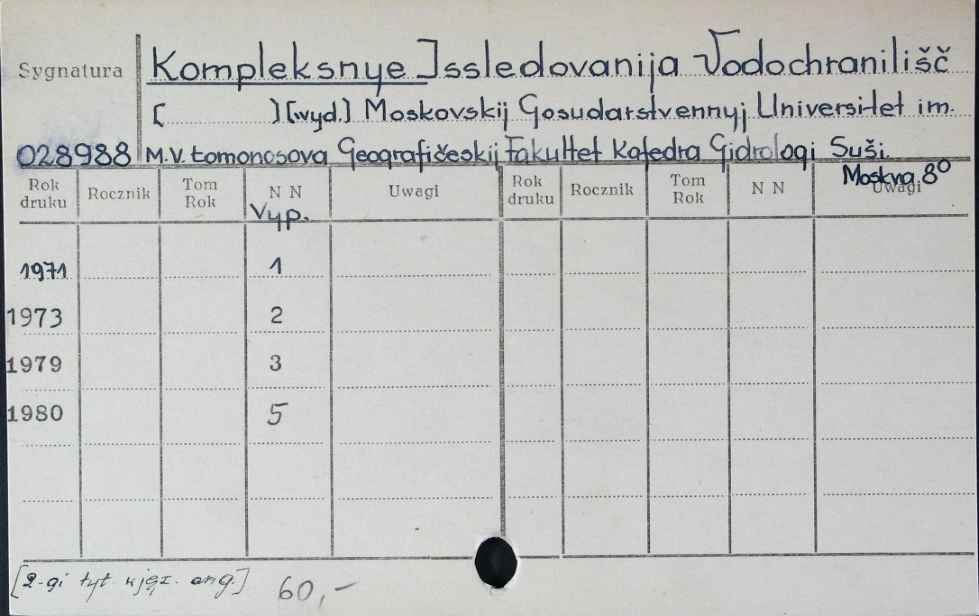 Sygnatura Kompleksnye Issledovanija Vodochranilišč
[ ) [wyd.] Moskovskij Gosudarstvennyj Universitet im.
028988 M.V. Łomonosova Geografičeskij Fakultet Katedra Gidrologi Suši.
Moskva 8°
Rok druku Rocznik Tom Rok N N Uwagi Rok druku Rocznik Tom Rok N N Uwagi
Vyp.
1971 1
1973 2
1979 3
1980 5
[2-gi tyt w jęz. ang.] 60,-